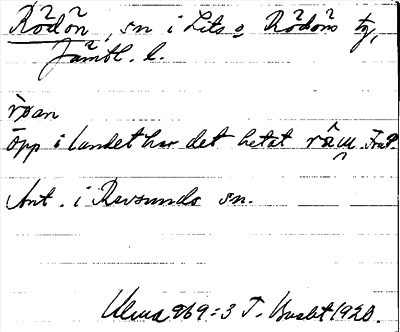 Rödön, sn i Lits o Rödöns tg,
Jämtl. l.
ròan
öpp i landet har det hetat
Ant. i Revsunds sn.
Ulma 869:3 T. Buskt 1920.